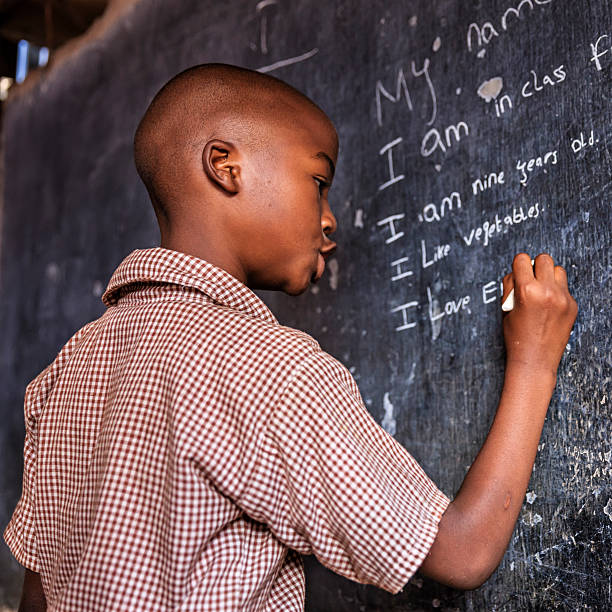 My name
My.
I am in class f
I am nine years old.
I Like vegetables.
I Love E